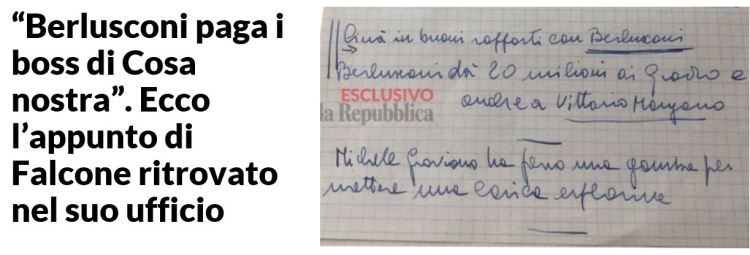 “Berlusconi paga i
boss di Cosa
nostra”. Ecco
l’appunto di
Falcone ritrovato
nel suo ufficio
Cinà in buoni rapporti con Berlusconi
Berlusconi dà 20 milioni ai Grado e
anche a Vittorio Mangano
ESCLUSIVO
la Repubblica
Michele Graviano ha perso una gamba per
mettere una carica esplosiva